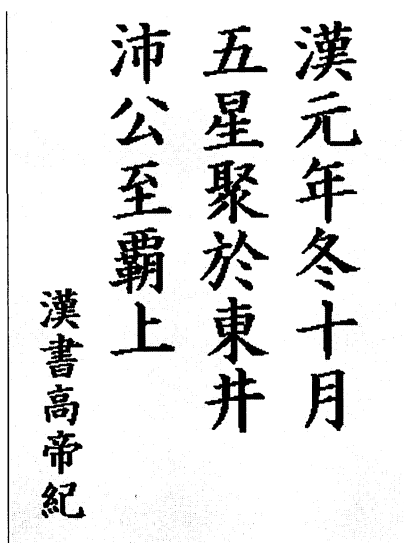 漢元年冬十月
五星聚於東井
沛公至霸上
漢書高帝紀